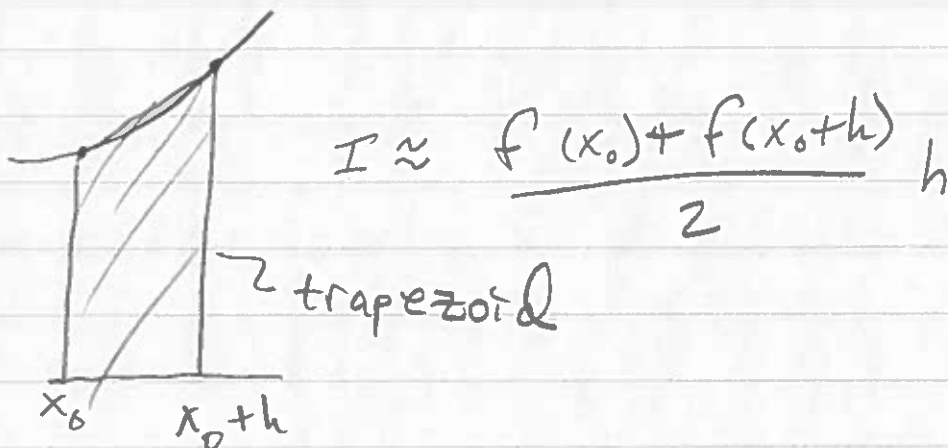 I ≈ f(x₀) + f(x₀+h) / 2 h
trapezoid
x₀
x₀+h